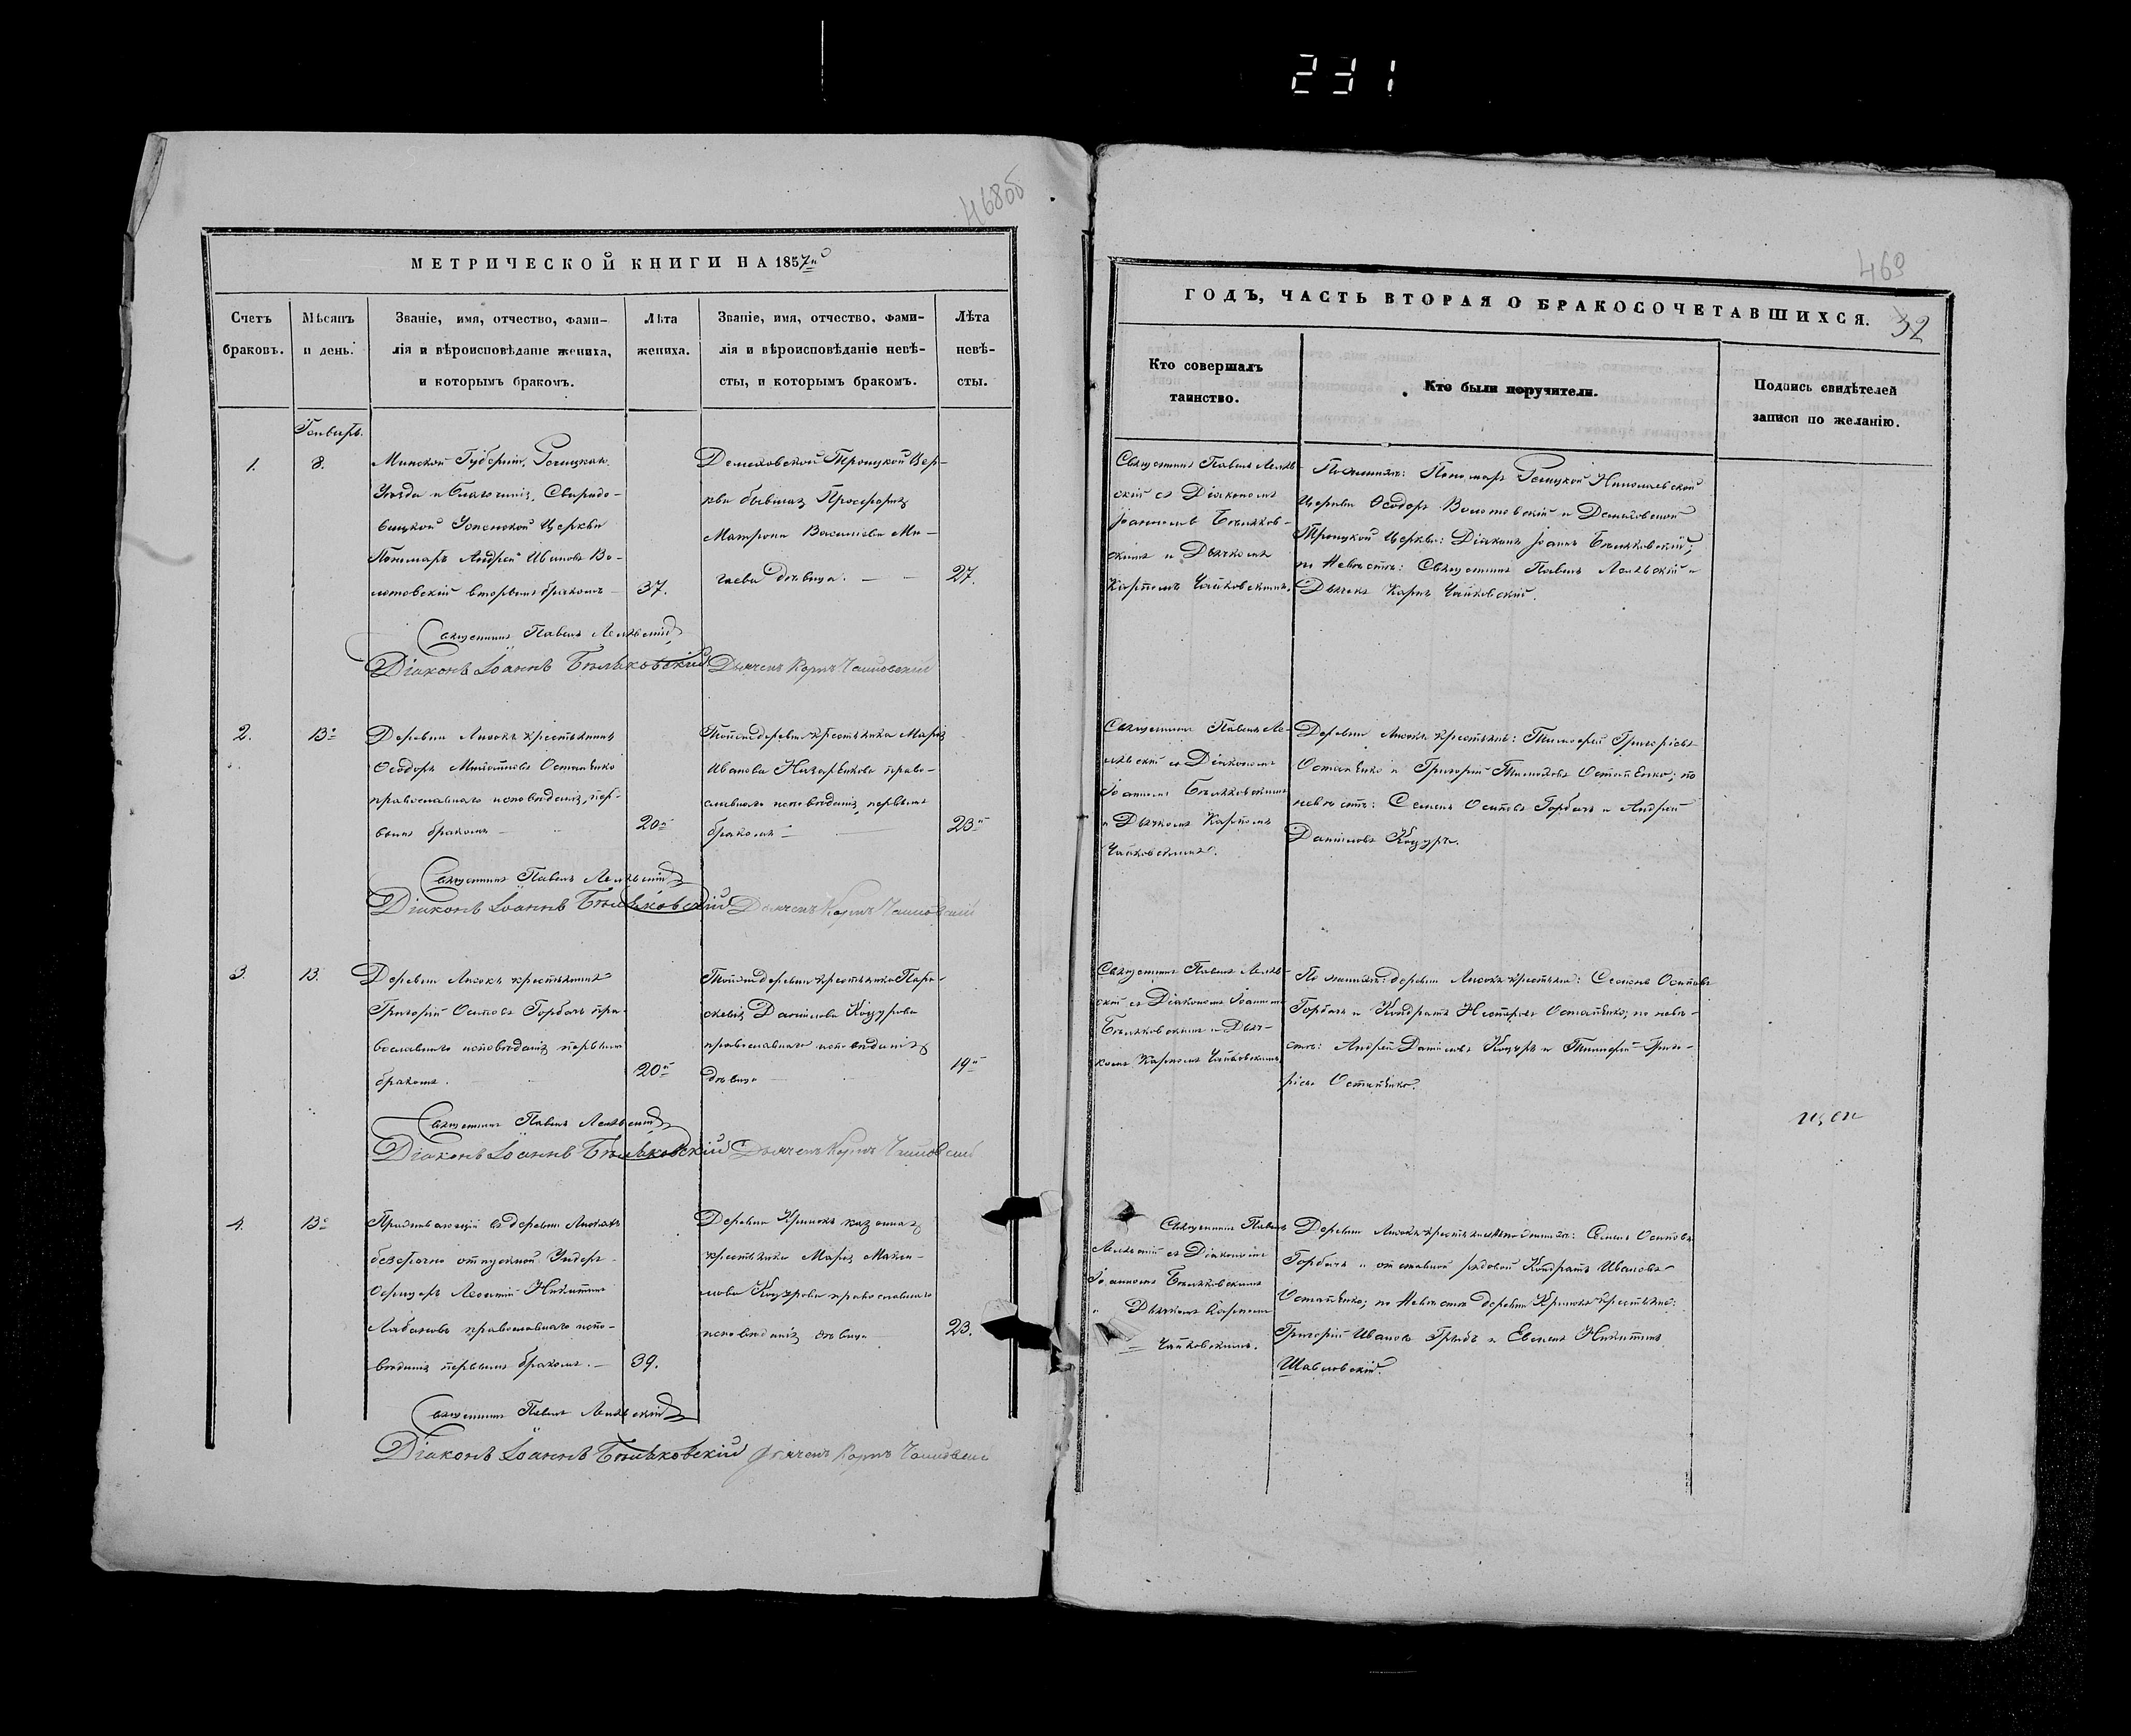 231
468об
МЕТРИЧЕСКОЙ КНИГИ НА 1857й
Счетъ браковъ.
Мѣсяцъ и день.
Званіе, имя, отчество, фами-
лія и вѣроисповѣданіе жениха,
и которымъ бракомъ.
Лѣта жениха.
Званіе, имя, отчество, фами-
лія и вѣроисповѣданіе невѣ-
сты, и которымъ бракомъ.
Лѣта невѣ-
сты.
Генварь.
1.
8.
Минской Губерніи, Речицкаго
Уѣзда и Благочинія, Свиридо-
вицкой Успенской Церкви
Пономарь Андрей Ивановъ Во-
лотовскій вторымъ бракомъ
37.
Демеховской Троицкой Цер-
кви бывшая Просфорня
Матрона Василиева Ми-
гаева дѣвица.
27.
Священникъ Павелъ
Діаконъ Іоаннъ Бѣльковскій Дьячекъ Карпъ Чайковскій
2.
13.
Деревни Лисокъ крестьянинъ
Ѳеодоръ Остапенко
православнаго исповѣданія, пер-
вымъ бракомъ
20
Той же деревни крестьянка Марія
Иванова Назаренкова право-
славнаго исповѣданія первымъ
бракомъ
23
Священникъ Павелъ
Діаконъ Іоаннъ Бѣльковскій Дьячекъ Карпъ Чайковскій
3.
13.
Деревни Лисокъ крестьянинъ
Григорій Осиповъ Горбачъ пра-
вославнаго исповѣданія первымъ
бракомъ.
20
Той же деревни крестьянка Пара-
скевія Даніилова Коцурова
православнаго исповѣданія
дѣвица
19
Священникъ Павелъ
Діаконъ Іоаннъ Бѣльковскій Дьячекъ Карпъ Чайковскій
4.
13.
Проживающій въ деревни Лискахъ
безсрочно отпускной Ундеръ-
Офицеръ Леонтій Никитинъ
Лабановъ православнаго испо-
вѣданія первымъ бракомъ.
39.
Деревни Крынокъ казенная
крестьянка Марія
Коцурова православнаго
исповѣданія дѣвица
23.
Священникъ Павелъ
Діаконъ Іоаннъ Бѣльковскій Дьячекъ Карпъ Чайковскій
469
ГОДЪ, ЧАСТЬ ВТОРАЯ О БРАКОСОЧЕТАВШИХСЯ.
32
Кто совершалъ
таинство.
Кто были поручители.
Подпись свидѣтелей
записи по желанію.
Священникъ Павелъ
съ Діакономъ
Іоанномъ Бѣльков-
скимъ и Дьячкомъ
Карпомъ Чайковскимъ.
По женихѣ: Пономарь Речицкой Николаевской
Церкви Ѳеодоръ Волотовскій и Демеховской
Троицкой Церкви: Діаконъ Іоаннъ Бѣльковскій;
по Невѣстѣ: Священникъ Павелъ и
Дьячекъ Карпъ Чайковскій.
Священникъ Павелъ
съ Діакономъ
Іоанномъ Бѣльковскимъ
и Дьячкомъ Карпомъ
Чайковскимъ.
Деревни Лисокъ крестьяне: Тимофей Григоріевъ
Остапенко и Григорій Остапенко; по
невѣстѣ: Семенъ Осиповъ Горбачъ и Андрей
Даніиловъ Коцуръ.
Священникъ Павелъ
съ Діакономъ Іоанномъ
Бѣльковскимъ и Дьяч-
комъ Карпомъ Чайковскимъ
По женихѣ: деревни Лисокъ крестьяне: Семенъ Осиповъ
Горбачъ и Кондратъ Остапенко; по невѣ-
стѣ: Андрей Даніиловъ Коцуръ и Тимофей Григо-
ріевъ Остапенко.
Священникъ Павелъ
съ Діакономъ
Іоанномъ Бѣльковскимъ
и Дьячкомъ Карпомъ
Чайковскимъ.
Деревни Лисокъ крестьяне по женихѣ: Семенъ Осиповъ
Горбачъ и отставной рядовой Кондратъ Ивановъ
Остапенко; по Невѣстѣ деревни Крынокъ крестьяне:
Григорій Ивановъ и Никитинъ
Шавловскій.